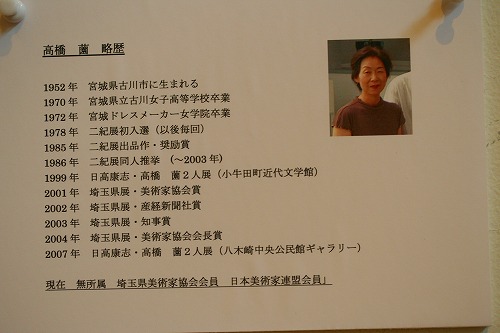 高橋　薗　略歴
1952年　宮城県古川市に生まれる
1970年　宮城県立古川女子高等学校卒業
1972年　宮城ドレスメーカー女学院卒業
1978年　二紀展初入選（以後毎回）
1985年　二紀展出品作・奨励賞
1986年　二紀展同人推挙　（～2003年）
1999年　日高康志・高橋　薗2人展（小牛田町近代文学館）
2001年　埼玉県展・美術家協会賞
2002年　埼玉県展・産経新聞社賞
2003年　埼玉県展・知事賞
2004年　埼玉県展・美術家協会会長賞
2007年　日高康志・高橋　薗2人展（八木崎中央公民館ギャラリー）
現在　無所属　埼玉県美術家協会会員　日本美術家連盟会員」